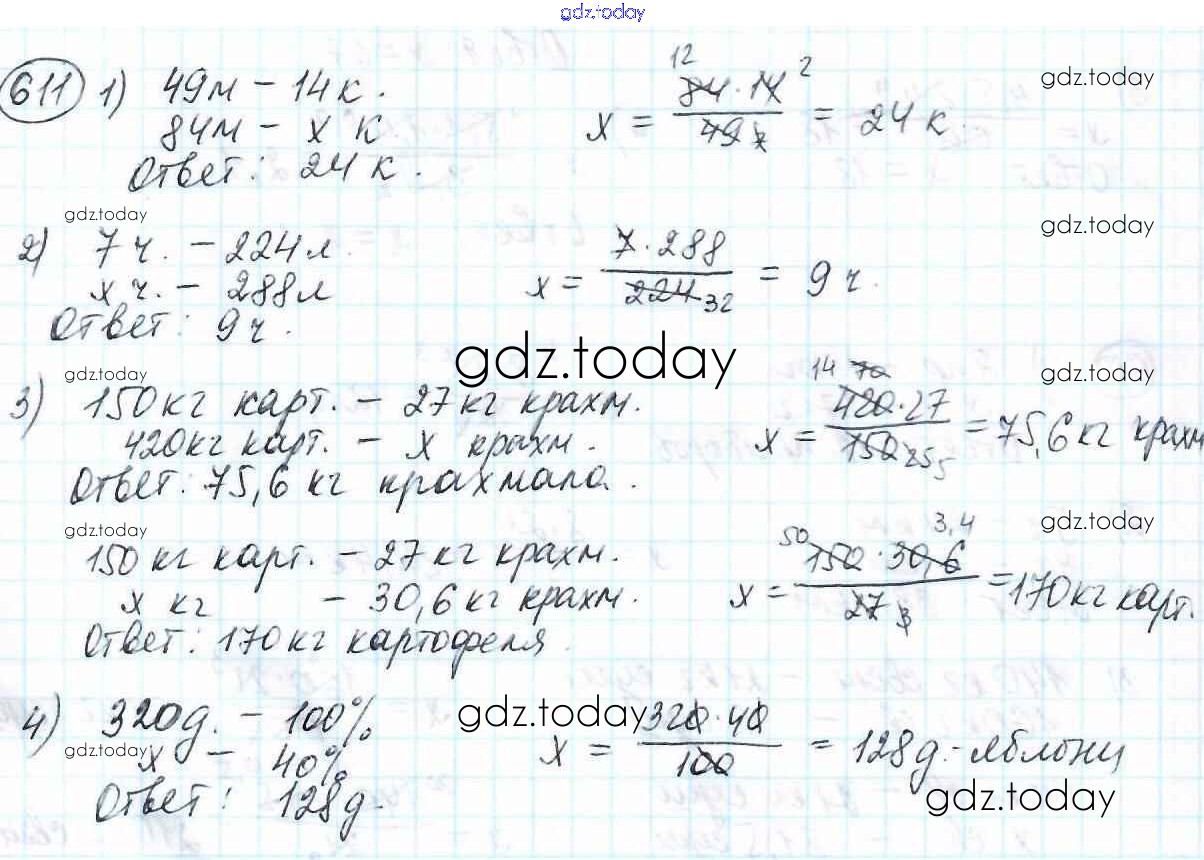 gdz.today
611 1) 49м – 14к.
84м – x к
x = 84·14 / 49 = 24 к
12 2 7
Ответ: 24 к.
gdz.today
gdz.today
gdz.today
2) 7 ч. – 224л.
x ч. – 288л
x = 7·288 / 224 = 9 ч.
32
Ответ: 9 ч.
gdz.today
gdz.today
gdz.today
3) 150кг карт. – 27кг крахм.
420кг карт. – x крахм.
x = 420·27 / 150 = 75,6 кг крахм
14 70 25 5
Ответ: 75,6 кг крахмала.
gdz.today
gdz.today
150 кг карт. – 27 кг крахм.
x кг – 30,6 кг крахм.
x = 150·30,6 / 27 = 170 кг карт.
50 3,4 3
Ответ: 170 кг картофеля.
4) 320д. – 100%
x – 40%
x = 320·40 / 100 = 128д.-яблони
Ответ: 128д.
gdz.today
gdz.today
gdz.today